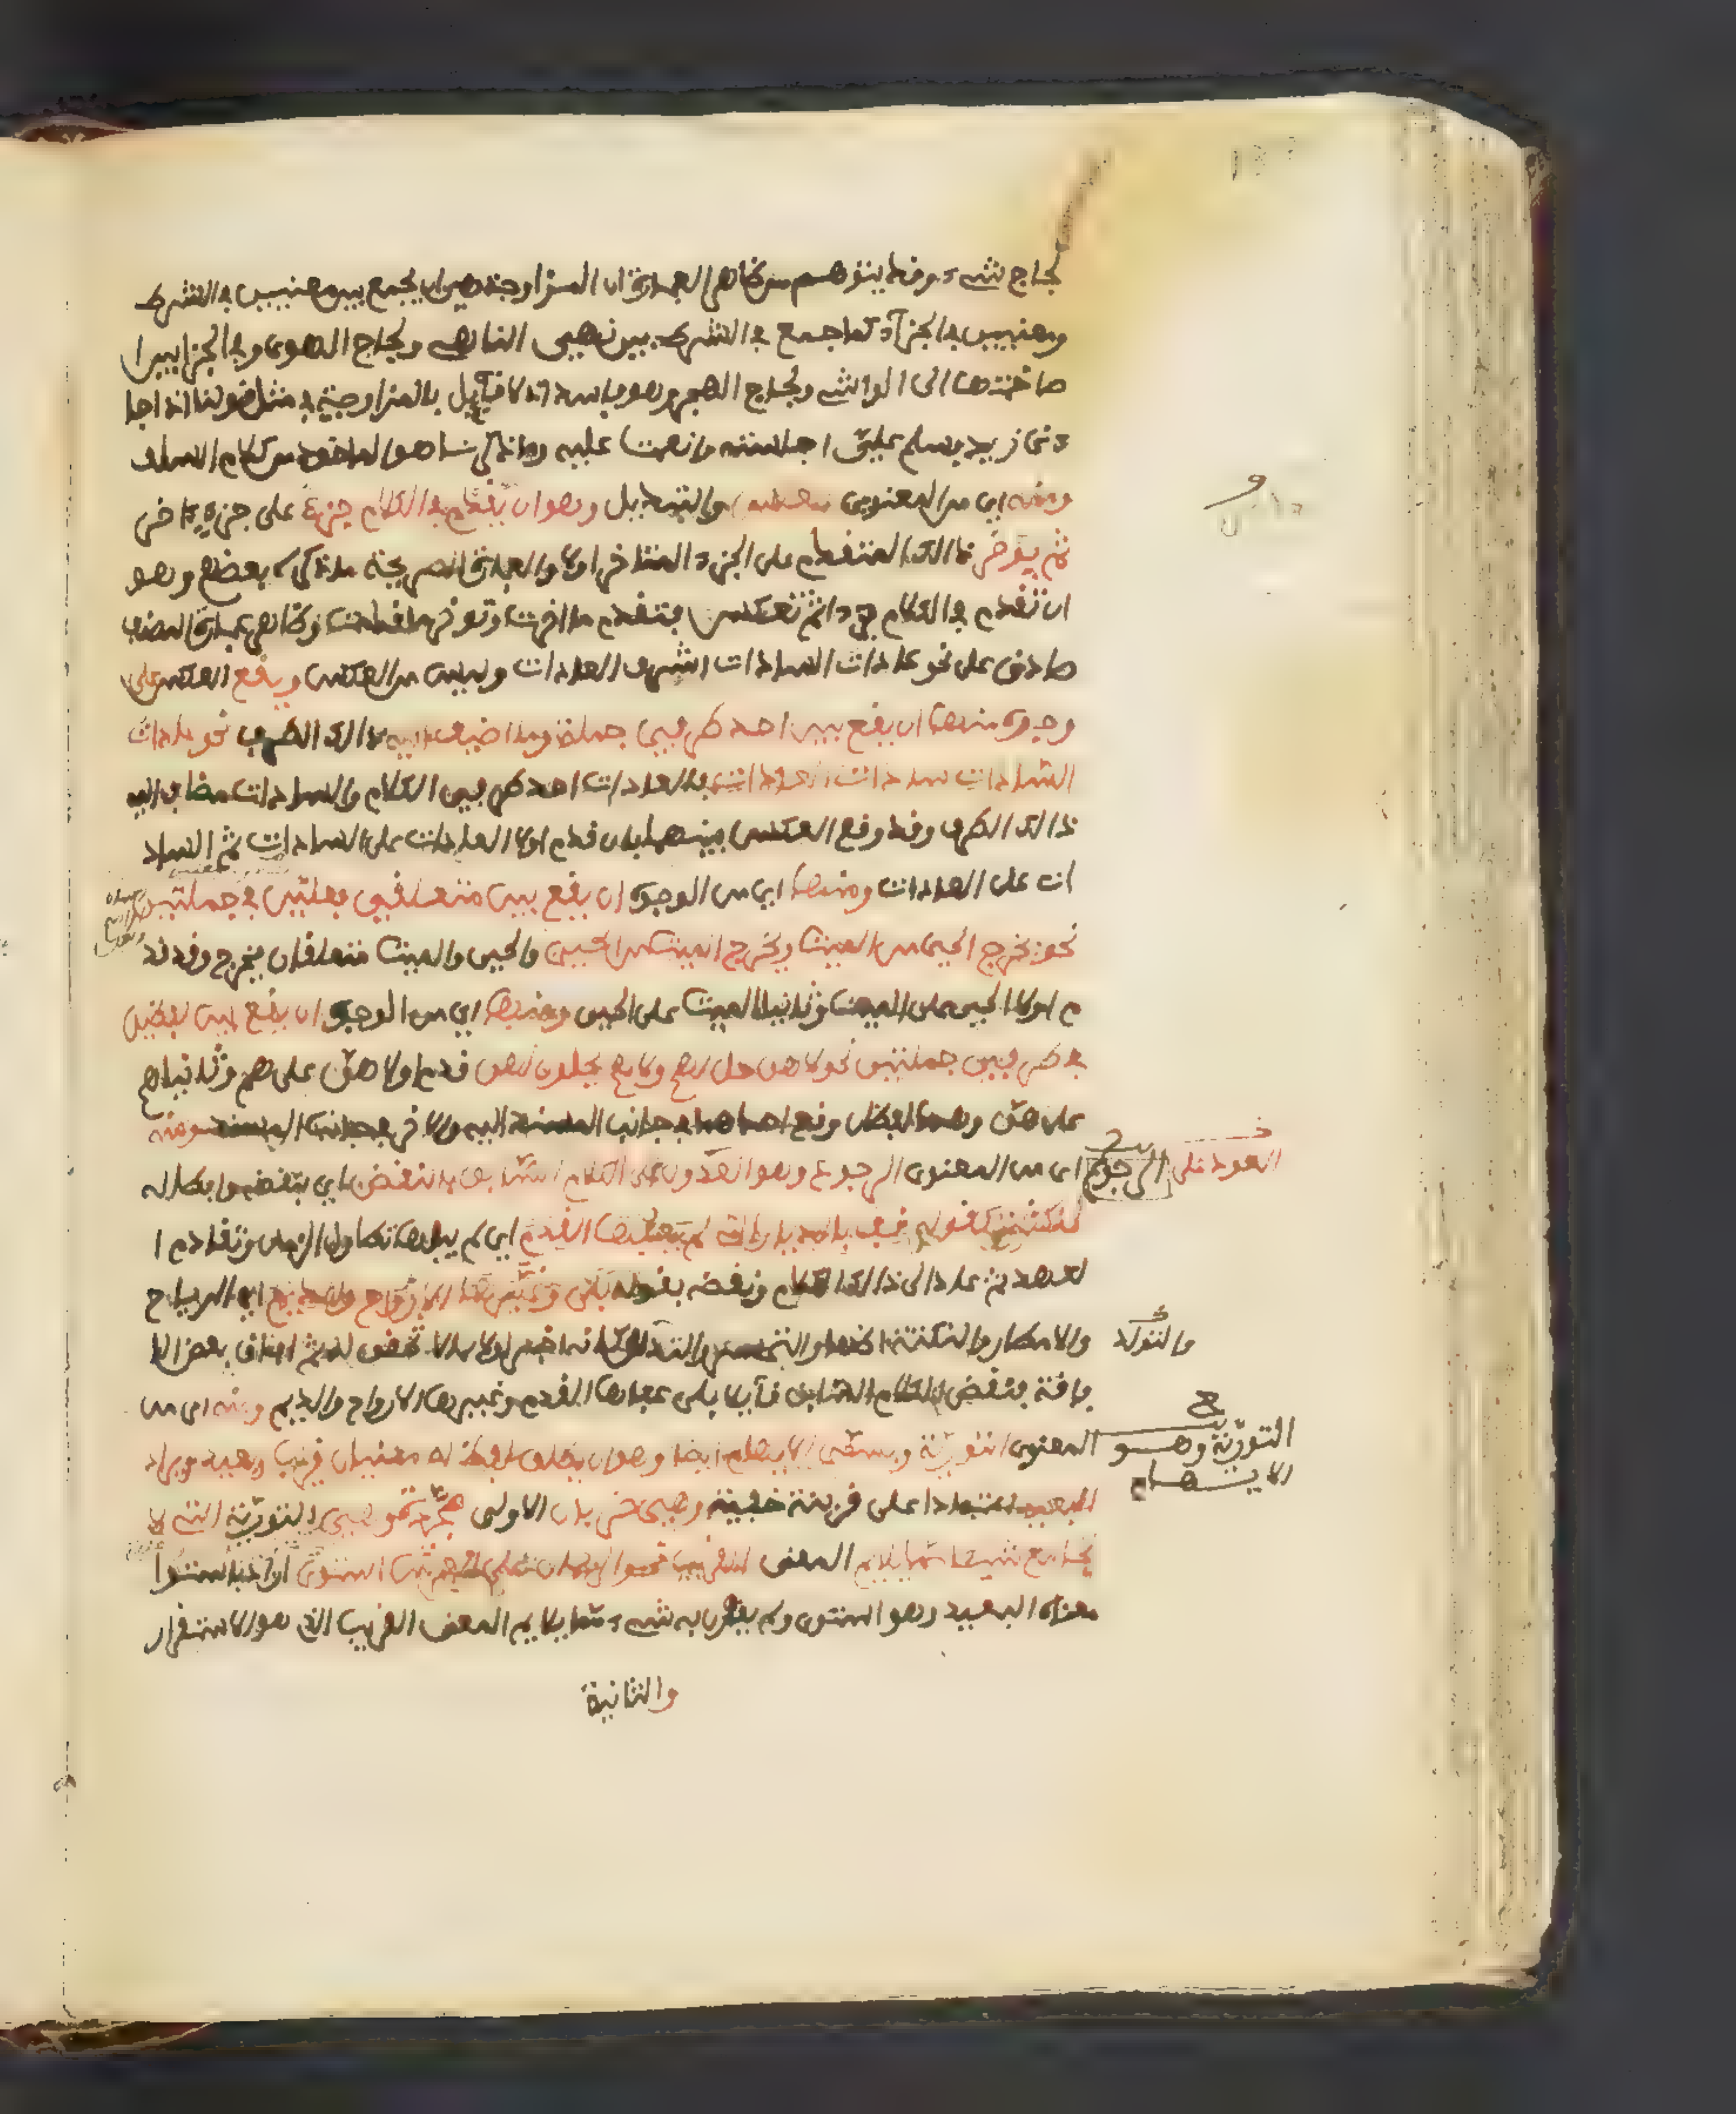 لجاج شيء وقد يتوهم من ظاهر العبارة ان المزاوجة هي ان يجمع بين معنيين في الشرط
ومعنيين في الجزآء كما جمع في الشرط بين نهيى الناهي ولجاج الهوى وفي الجزا بين ا
صاختها الى الواشي ولجاج الهجر وهو فاسد اذ لا قآيل بالمزاوجة في مثل قولنا اذا جا
ءني زيد فسلم عليّ اجلسته وانعمت عليه وما ذكرنا هو الماخوذ من كلام السلف
ومنه اي من المعنوي والتبديل وهو ان يقدّم في الكلام جزء على جزء اخر
ثم يؤخر ذالك المتقدم على الجزء المتاخر اولا والعبارة الصريحة ما ذكره بعضهم وهو
ان تقدم في الكلام جزءا ثم تعكس فتقدم ما اخرت وتوخر ما قدمت وظاهر عبارة المصنف
صادق على نحو عادات السادات اشرف العادات وليس من العكس ويقع العكس على
وجوه منها ان يقع بين احد طرفي جملة وما اضيف اليه ذالك الطرف نحو عادات
السّادات سادات العادات فالعادات احد طرفي الكلام والسادات مضاف اليه
ذالك الطرف وقد وقع العكس بينهما بان قدم اولا العادات على السادات ثم الساد
ات على العادات ومنها اي من الوجوه ان يقع بين متعلقي فعليْن في جملتين
نحو يخرج الحي من الميت ويخرج الميت من الحي فالحي والميت متعلقان بيخرج وقد قد
م اولا الحي على الميت وثانيا الميت على الحي ومنها اي من الوجوه ان يقع بين لفظين
في طرفي جملتين نحو لا هن حل لهم ولا هم يحلون لهن قدم اولا هنّ على هم وثانيا هم
على هنّ وهما لفظان وقع احدهما في جانب المسند اليه والاخر في جانب المسند ومنه
اى من المعنوى الرجوع وهو العود على الكلام السّابق بالنقض اي بنقضه وابطاله
لنكتة كقوله قف بالديار التي لم يعفها القدم اي لم يبلها تطاول الزمان وتقادم ا
لعهد ثم عاد الى ذالك الكلام ونقضه بقوله بلى وغيّرها الارواح والديم اي الرياح
والامطار والنكتة اظهار التحسر والتدله كانه اخبر اولا بما لا تحقق له ثم افاق بعض الا
فاقة فنقض الكلام السّابق قآيلا بلى عفاها القدم وغيرها الارواح والديم ومنه اى من
المعنوى التوريّة ويسمّى الايهام ايضا وهو ان يطلق لفظ له معنيان قريب وبعيد ويراد
البعيد اعتمادا على قرينة خفية وهي ضربان الاولى مجرّدة وهي التوريّة التي لا
تجامع شيئا ممّا يلايم المعنى القريب نحو الرحمان على العرش استوى اراد باستوا
معناه البعيد وهو استولى ولم يقرن به شيء ممّا يلايم المعنى القريب الذي هو الاستقرار
والثانية
العود على
الرجوع
والتولّد
التوريّة وهو
الايهام